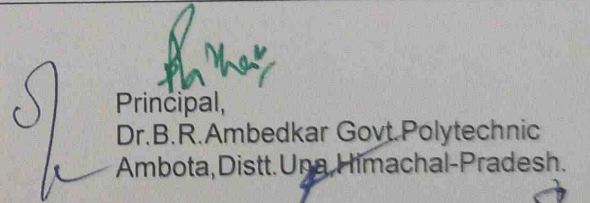 Principal,
Dr.B.R.Ambedkar Govt.Polytechnic
Ambota,Distt.Una,Himachal-Pradesh.